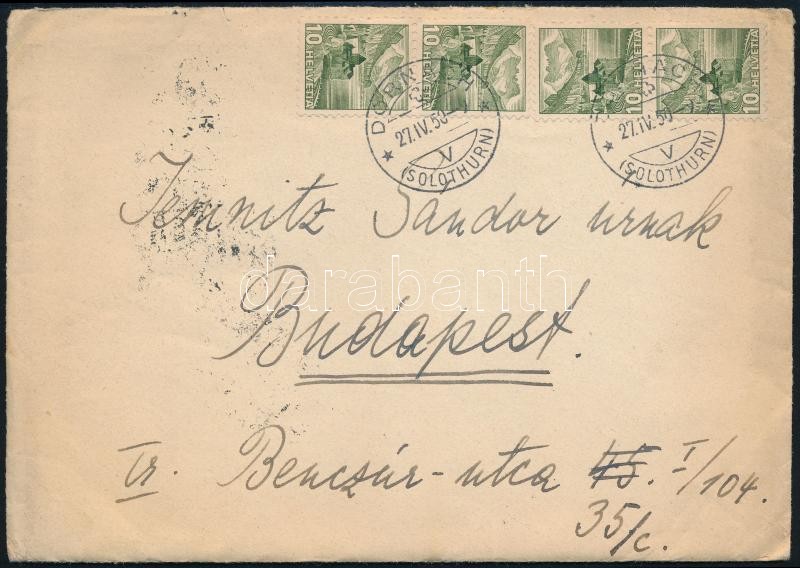 10 HELVETIA 10 HELVETIA 10 HELVETIA 10 HELVETIA
27.IV.50 27.IV.50
(SOLOTHURN) (SOLOTHURN)
Jemnitz Sándor urnak
darabanth
Budapest.
VI. Benczúr-utca 45. I/104.
35/c.